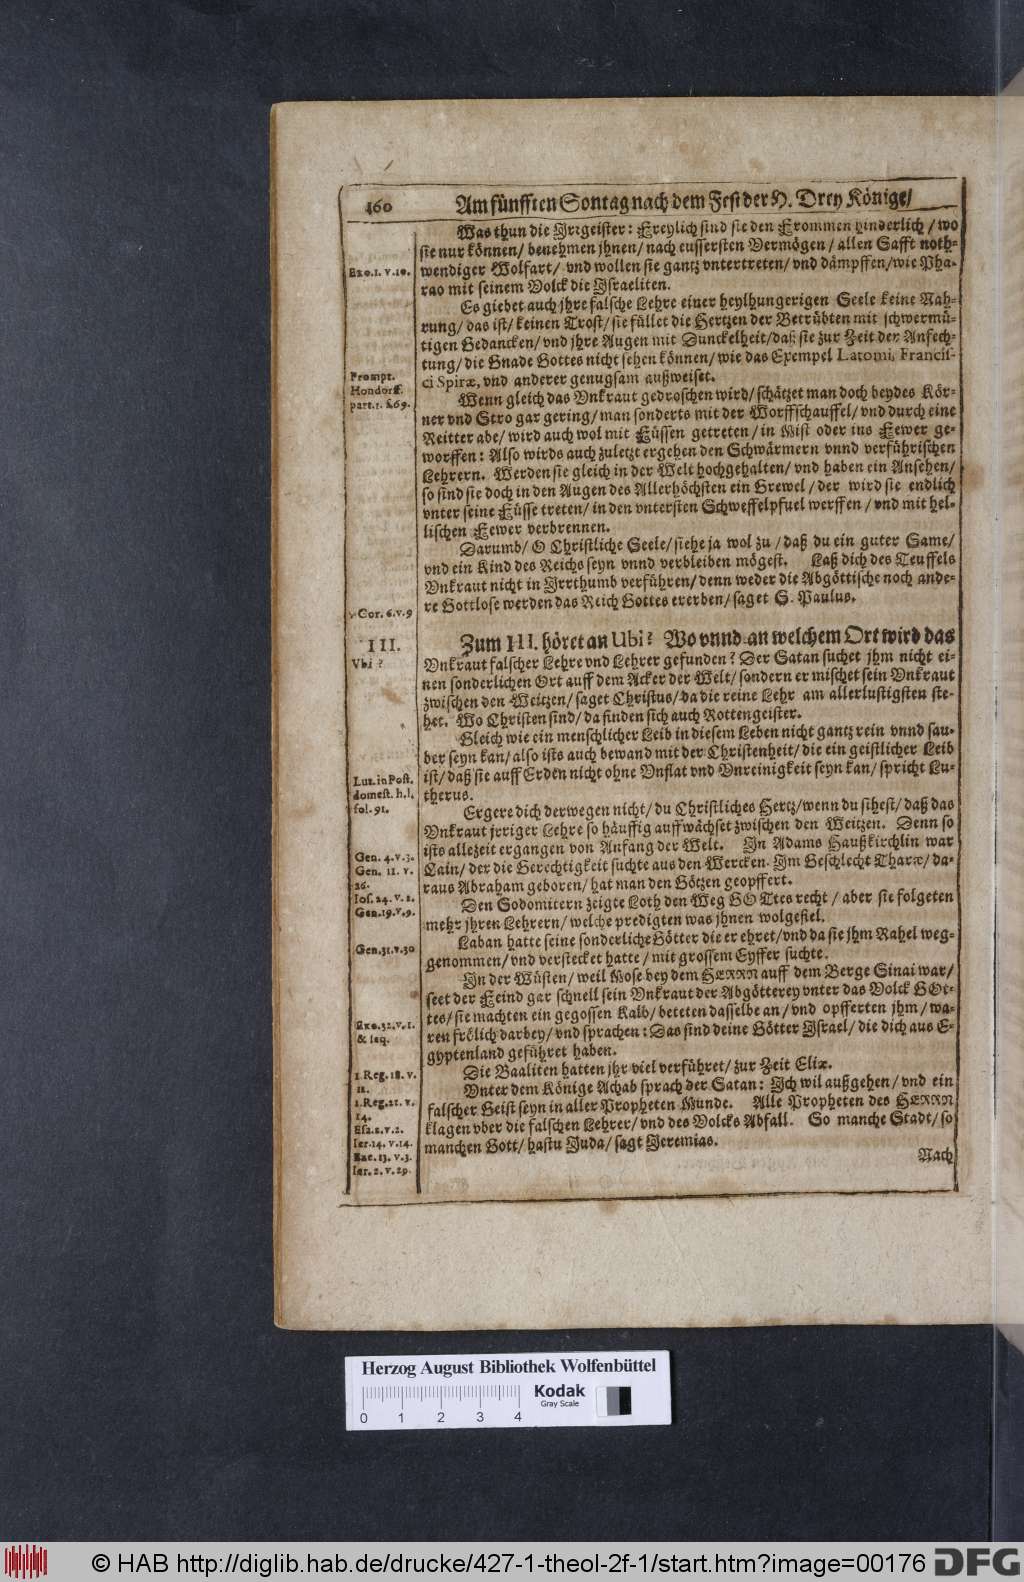 160
Am fünfften Sontag nach dem Fest der H. Drey Könige/
Was thun die Irrgeister: Freylich sind sie den Frommen hinderlich / wo
sie nur können/ benehmen jhnen/ nach eussersten Vermögen / allen Safft noth-
Exo. 1. v. 10.
wendiger Wolfart/ vnd wollen sie gantz vntertreten/ vnd dämpffen/ wie Pha-
rao mit seinem Volck die Israeliten.
Es giebet auch jhre falsche Lehre einer heylhungerigen Seele keine Nah-
rung/ das ist/ keinen Trost/ sie füllet die Hertzen der Betrübten mit schwermü-
tigen Gedancken/ vnd jhre Augen mit Dunckelheit/ daß sie zur Zeit der Anfech-
tung/ die Gnade Gottes nicht sehen können/ wie das Exempel Latomi, Francis-
Prompt.
Hondorff.
part. 1. f. 69.
ci Spiræ, vnd anderer genugsam außweiset.
Wenn gleich das Vnkraut gedroschen wird/ schätzet man doch beydes Kör-
ner vnd Stro gar gering/ man sonderts mit der Worffschauffel/ vnd durch eine
Reitter abe/ wird auch wol mit Füssen getreten/ in Mist oder ins Fewer ge-
worffen: Also wirds auch zuletzt ergehen den Schwärmern vnnd verführischen
Lehrern. Werden sie gleich in der Welt hochgehalten/ vnd haben ein Ansehen/
so sind sie doch in den Augen des Allerhöchsten ein Grewel/ der wird sie endlich
vnter seine Füsse treten/ in den vntersten Schweffelpfuel werffen / vnd mit hel-
lischen Fewer verbrennen.
Darumb/ O Christliche Seele/ siehe ja wol zu / daß du ein guter Same/
vnd ein Kind des Reichs seyn vnnd verbleiben mögest. Laß dich des Teuffels
Vnkraut nicht in Irrthumb verführen/ denn weder die Abgöttische noch ande-
1. Cor. 6. v. 9
re Gottlose werden das Reich Gottes ererben/ saget S. Paulus.
III.
Vbi ?
Zum III. höret an Ubi? Wo vnnd an welchem Ort wird das
Vnkraut falscher Lehre vnd Lehrer gefunden? Der Satan suchet jhm nicht ei-
nen sonderlichen Ort auff dem Acker der Welt/ sondern er mischet sein Vnkraut
zwischen den Weitzen/ saget Christus/ da die reine Lehr am allerlustigsten ste-
het. Wo Christen sind/ da finden sich auch Rottengeister.
Gleich wie ein menschlicher Leib in diesem Leben nicht gantz rein vnnd sau-
ber seyn kan/ also ists auch bewand mit der Christenheit/ die ein geistlicher Leib
Lut. in Post.
domest. h. l.
fol. 91.
ist/ daß sie auff Erden nicht ohne Vnflat vnd Vnreinigkeit seyn kan/ spricht Lu-
therus.
Ergere dich derwegen nicht/ du Christliches Hertz/ wenn du sihest/ daß das
Vnkraut jrriger Lehre so häuffig auffwächset zwischen den Weitzen. Denn so
Gen. 4. v. 3.
ists allezeit ergangen von Anfang der Welt. In Adams Haußkirchlin war
Gen. 11. v.
26.
Cain/ der die Gerechtigkeit suchte aus den Wercken. Im Geschlecht Tharæ/ da-
raus Abraham geboren/ hat man den Götzen geopffert.
Ios. 24. v. 2.
Gen. 19. v. 9.
Den Sodomitern zeigte Loth den Weg GOTtes recht / aber sie folgeten
mehr jhren Lehrern/ welche predigten was jhnen wolgefiel.
Gen. 31. v. 30
Laban hatte seine sonderliche Götter die er ehret/ vnd da sie jhm Rahel weg-
genommen/ vnd verstecket hatte/ mit grossem Eyffer suchte.
In der Wüsten/ weil Mose bey dem HERRN auff dem Berge Sinai war/
seet der Feind gar schnell sein Vnkraut der Abgötterey vnter das Volck GOt-
Exo. 32. v. 1.
& seq.
tes/ sie machten ein gegossen Kalb/ beteten dasselbe an/ vnd opfferten jhm/ wa-
ren frölich darbey/ vnd sprachen: Das sind deine Götter Israel/ die dich aus E-
gyptenland geführet haben.
1. Reg. 18. v.
22.
Die Baaliten hatten jhr viel verführet/ zur Zeit Eliæ.
Vnter dem Könige Achab sprach der Satan: Ich wil außgehen/ vnd ein
1. Reg. 22. v.
24.
falscher Geist seyn in aller Propheten Munde. Alle Propheten des HERRN
Esa. 2. v. 2.
klagen vber die falschen Lehrer/ vnd des Volcks Abfall. So manche Stadt/ so
Ier. 14. v. 14.
Eze. 13. v. 3.
Ier. 2. v. 29.
manchen Gott/ hastu Juda/ sagt Jeremias.
Nach
Herzog August Bibliothek Wolfenbüttel
0 1 2 3 4
Kodak
Gray Scale
© HAB http://diglib.hab.de/drucke/427-1-theol-2f-1/start.htm?image=00176
DFG